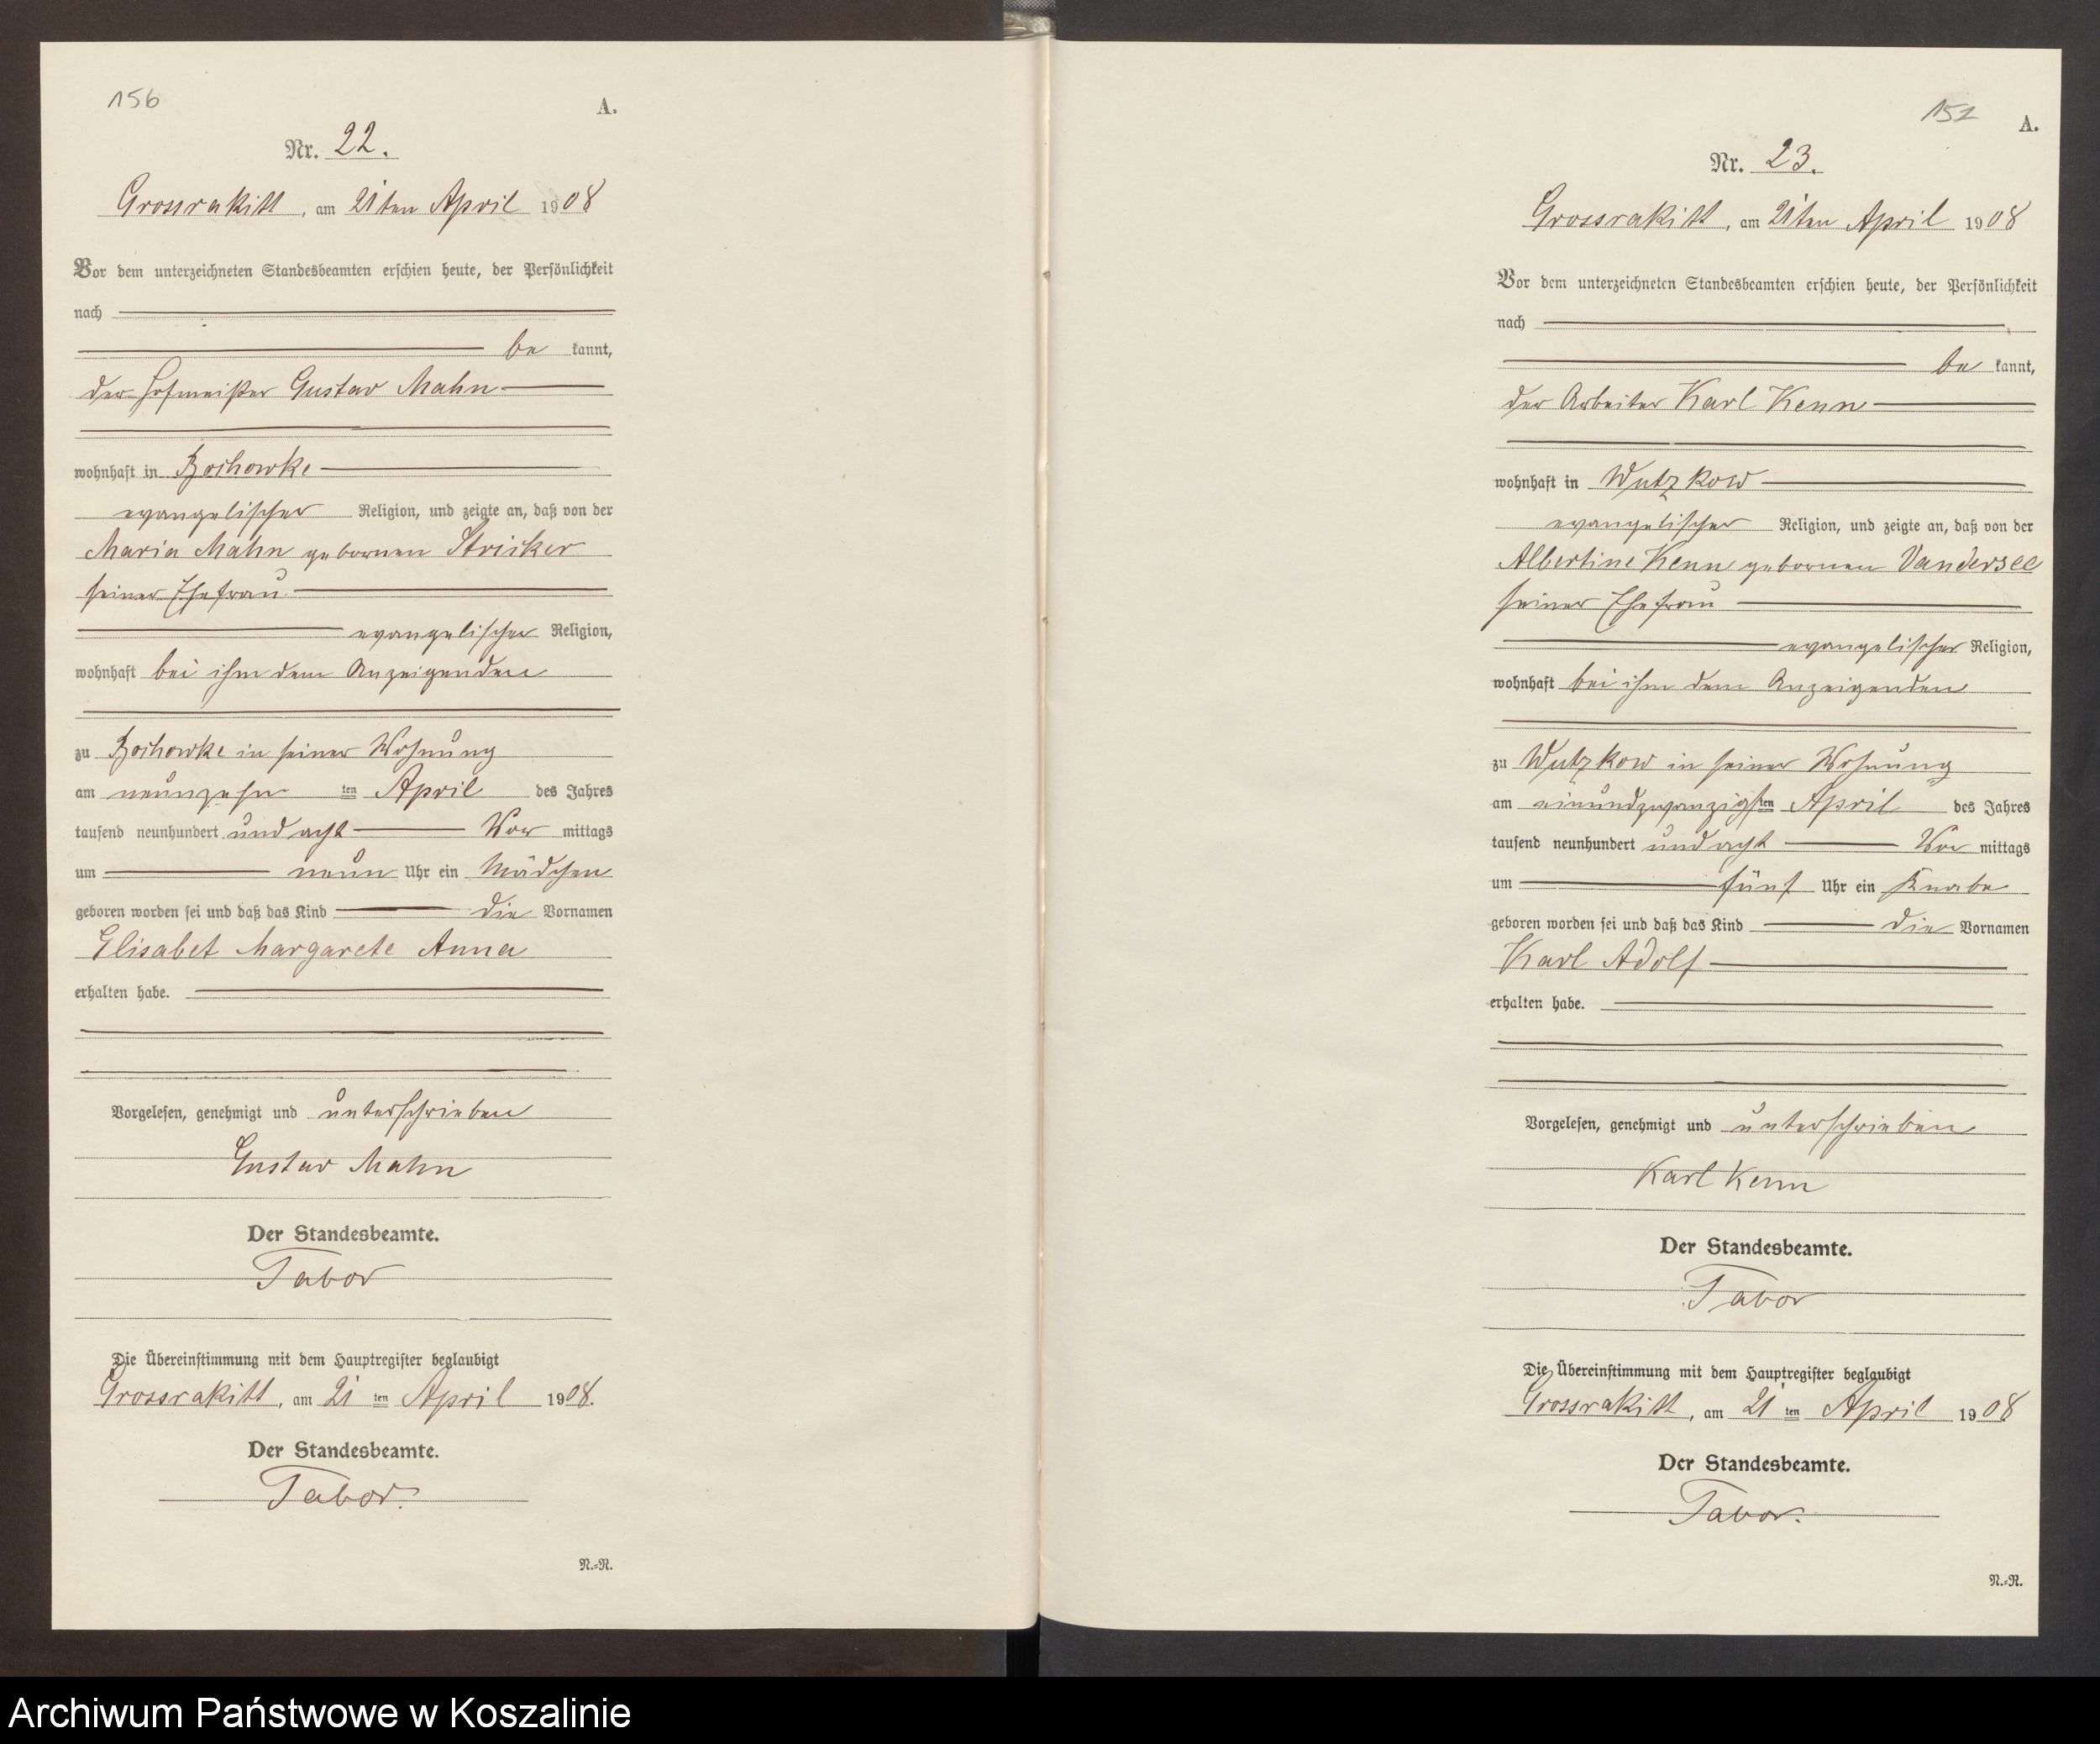 156
A.
Nr. 22.
Grossrakitt, am 21ten April 1908
Vor dem unterzeichneten Standesbeamten erschien heute, der Persönlichkeit
nach
be kannt,
der Hofmeister Gustav Mahn
wohnhaft in Bochowke
evangelischer Religion, und zeigte an, daß von der
Maria Mahn gebornen Stricker
seiner Ehefrau
evangelischer Religion,
wohnhaft bei ihm dem Anzeigenden
zu Bochowke in seiner Wohnung
am neunzehn ten April des Jahres
tausend neunhundert und acht Vor mittags
um neun Uhr ein Mädchen
geboren worden sei und daß das Kind die Vornamen
Elisabet Margarete Anna
erhalten habe.
Vorgelesen, genehmigt und unterschrieben
Gustav Mahn
Der Standesbeamte.
Tabor
Die Übereinstimmung mit dem Hauptregister beglaubigt
Grossrakitt, am 21 ten April 1908.
Der Standesbeamte.
Tabor.
N.=R.
A.
Nr. 23.
Grossrakitt, am 21ten April 1908
Vor dem unterzeichneten Standesbeamten erschien heute, der Persönlichkeit
nach
be kannt,
der Arbeiter Karl Kenn
wohnhaft in Wutzkow
evangelischer Religion, und zeigte an, daß von der
Albertine Kenn gebornen Vandersee
seiner Ehefrau
evangelischer Religion,
wohnhaft bei ihm dem Anzeigenden
zu Wutzkow in seiner Wohnung
am einundzwanzigsten April des Jahres
tausend neunhundert und acht Vor mittags
um fünf Uhr ein Knabe
geboren worden sei und daß das Kind die Vornamen
Karl Adolf
erhalten habe.
Vorgelesen, genehmigt und unterschrieben
Karl Kenn
Der Standesbeamte.
Tabor
Die Übereinstimmung mit dem Hauptregister beglaubigt
Grossrakitt, am 21 ten April 1908
Der Standesbeamte.
Tabor.
N.=R.
Archiwum Państwowe w Koszalinie